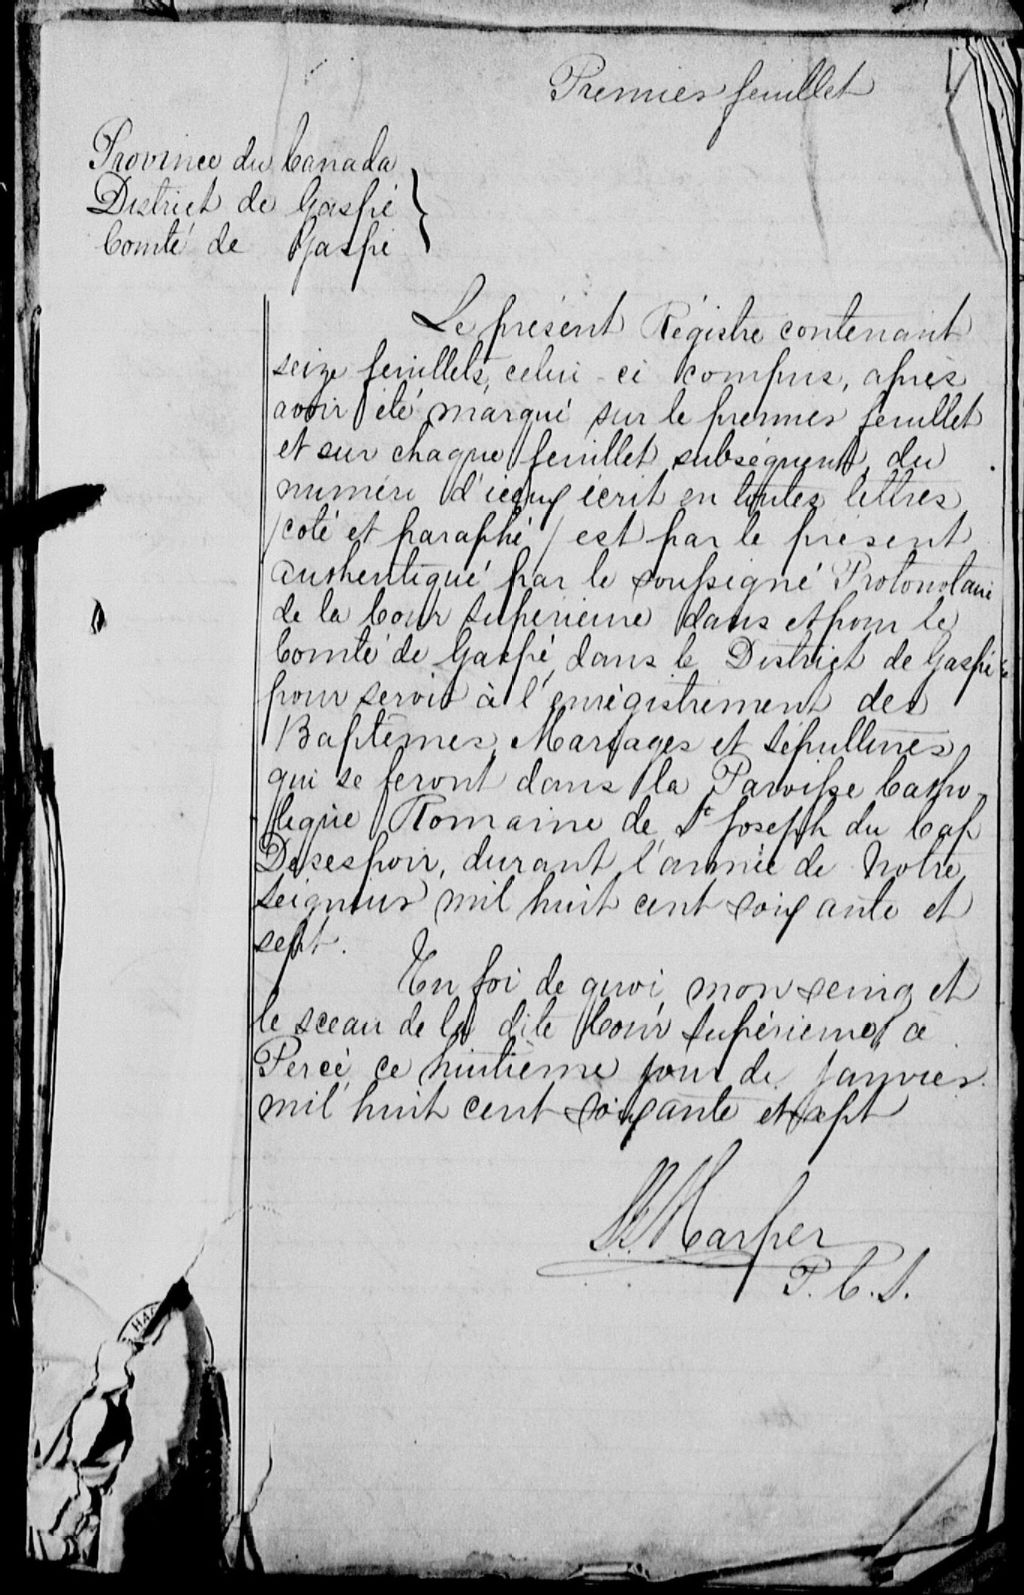 Premier feuillet
Province du Canada
District de Gaspé
Comté de Gaspé
Le présent Régistre contenant
seize feuillets, celui-ci compris, après
avoir été marqué sur le premier feuillet
et sur chaque feuillet subséquent, du
numéro d'iceux écrit en toutes lettres
/coté et paraphé/ est par le présent
authentiqué par le soussigné Protonotaire
de la Cour Supérieure dans et pour le
Comté de Gaspé, dans le District de Gaspé
pour servir à l'enrégistrement des
Baptêmes, Mariages et Sépultures
qui se feront dans la Paroisse Catho-
lique Romaine de St Joseph du Cap
Desespoir, durant l'année de Notre
Seigneur mil huit cent soixante et
sept.
En foi de quoi, mon seing et
le sceau de la dite Cour Supérieure, à
Percé, ce huitième jour de Janvier
mil huit cent soixante et sept
Harper
P. C. S.